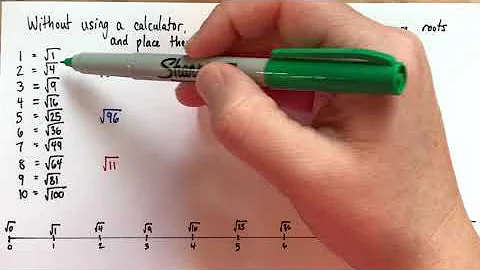 Without using a calculator, roots
and place the
1 = √1
2 = √4
3 = √9
4 = √16
5 = √25
6 = √36
7 = √49
8 = √64
9 = √81
10 = √100
√96
√11
Sharpie
√0 √1 √4 √9 √16 √25 √36
0 1 2 3 4 5 6